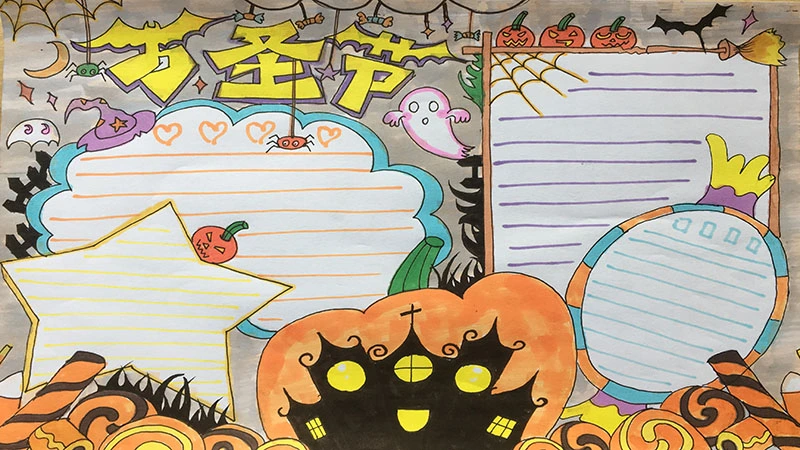 万圣节